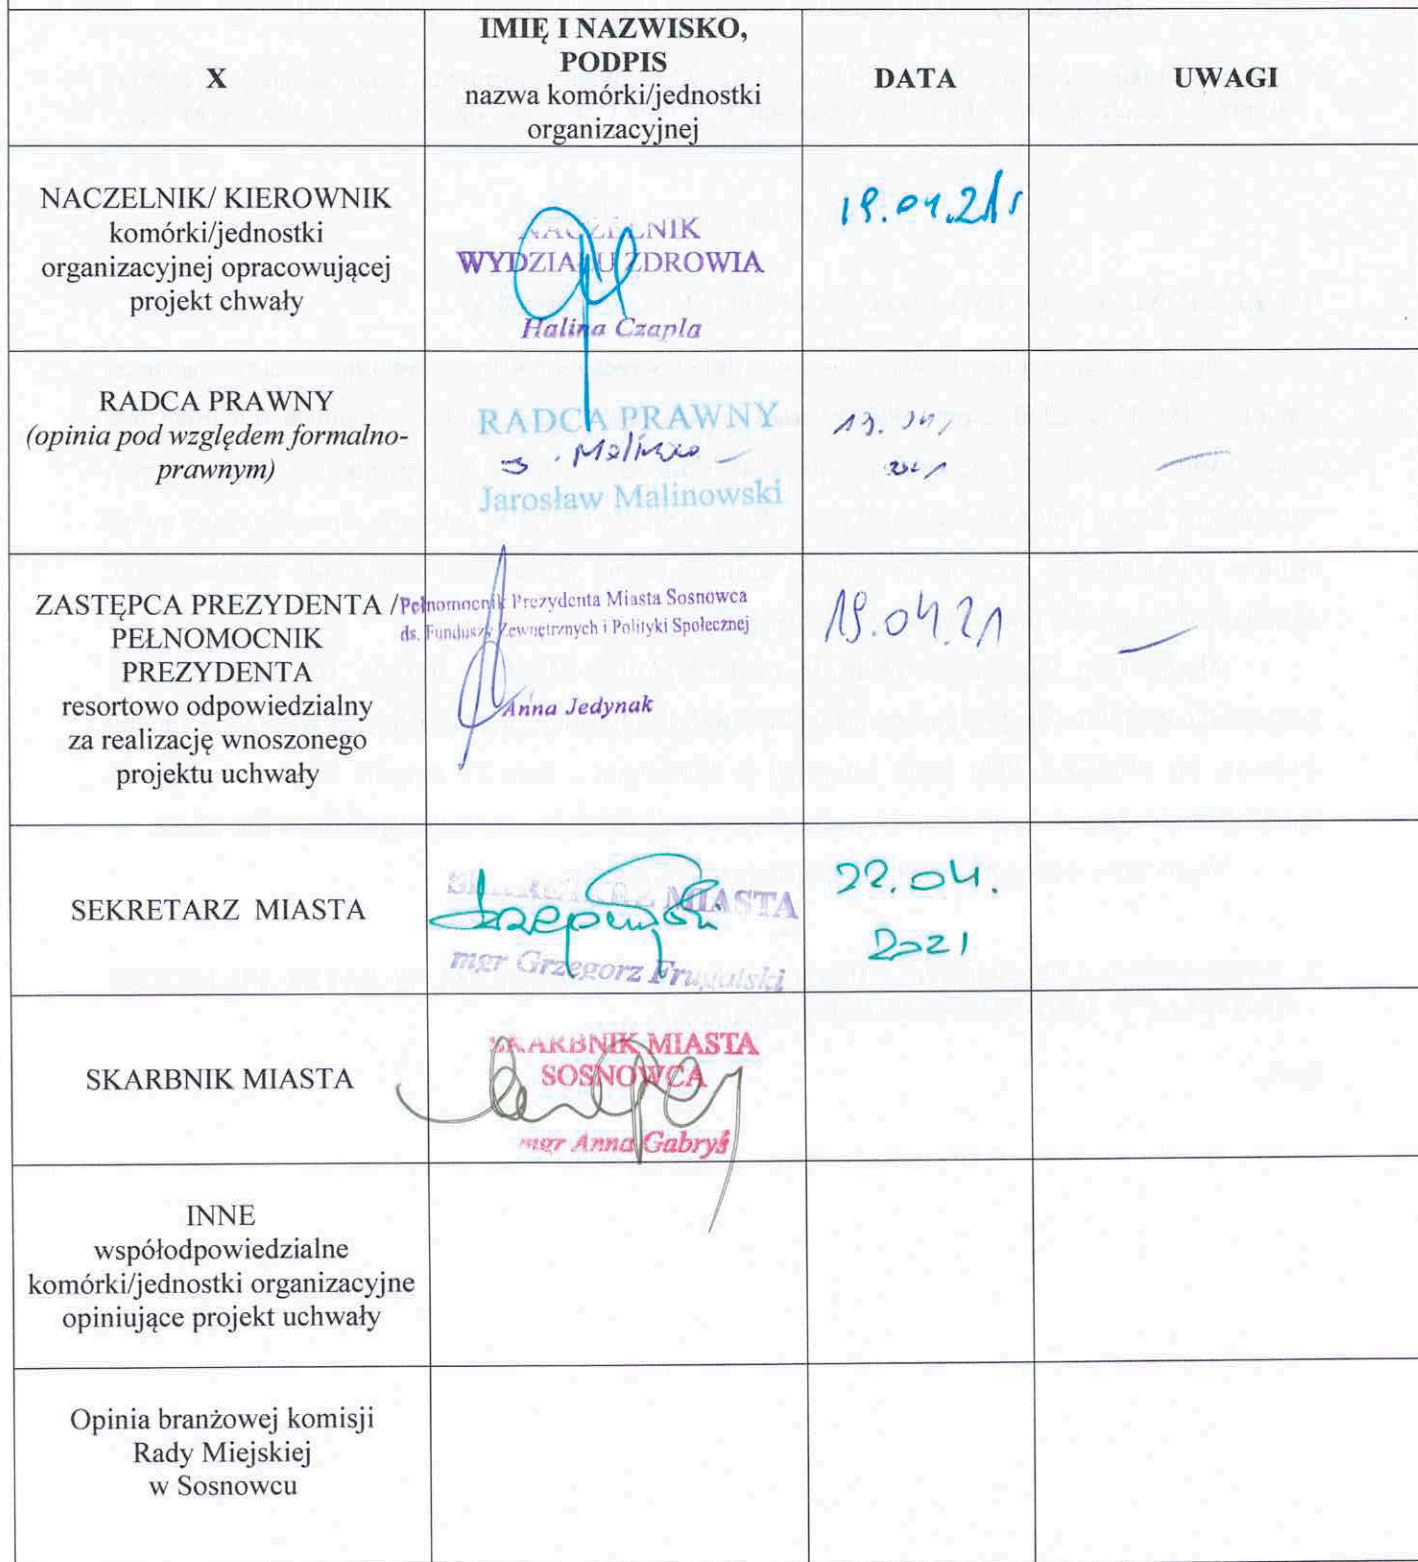 X
IMIĘ I NAZWISKO,
PODPIS
nazwa komórki/jednostki
organizacyjnej
DATA
UWAGI
NACZELNIK/ KIEROWNIK
komórki/jednostki
organizacyjnej opracowującej
projekt chwały
NACZELNIK
WYDZIAŁU ZDROWIA
Halina Czapla
19.04.21r
RADCA PRAWNY
(opinia pod względem formalno-
prawnym)
RADCA PRAWNY
Jarosław Malinowski
19.04,
2021
ZASTĘPCA PREZYDENTA /
PEŁNOMOCNIK
PREZYDENTA
resortowo odpowiedzialny
za realizację wnoszonego
projektu uchwały
Pełnomocnik Prezydenta Miasta Sosnowca
ds. Funduszy Zewnętrznych i Polityki Społecznej
Anna Jedynak
19.04.21
SEKRETARZ MIASTA
SEKRETARZ MIASTA
mgr Grzegorz Frugalski
22.04.
2021
SKARBNIK MIASTA
SKARBNIK MIASTA
SOSNOWCA
mgr Anna Gabryś
INNE
współodpowiedzialne
komórki/jednostki organizacyjne
opiniujące projekt uchwały
Opinia branżowej komisji
Rady Miejskiej
w Sosnowcu